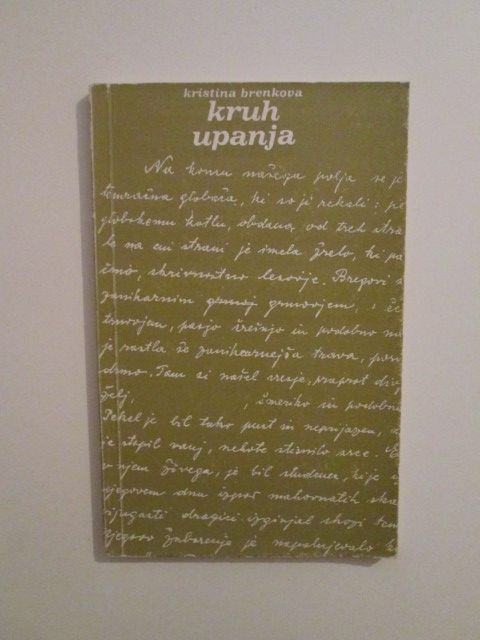 kristina brenkova
kruh
upanja
Na koncu našega polja se je
temračna globača, ki so ji rekali: pe
globokemu kotlu, obdana od treh stra
le na eni strani je imela žrelo, ki pa
čmo, skrivnostno lesovje. Bregovi s
zanikarnim grmovjem, č
trnovjem, pasjo črešnjo in podobno
je rastla še zanikarnejša trava, pov
drmo. Tam si našel resje, praprot div
želj, , čmeriko in podobno
Pekel je bil tako pust in neprijazen,
je stopil vanj, nehote stisnilo srce. E
v njem živega, je bil studenec, ki je
njegovem dnu izpod mahovnatih ska
vijugasti dragici izginjal skozi tem
njegovo žuborenje je napolnjevalo